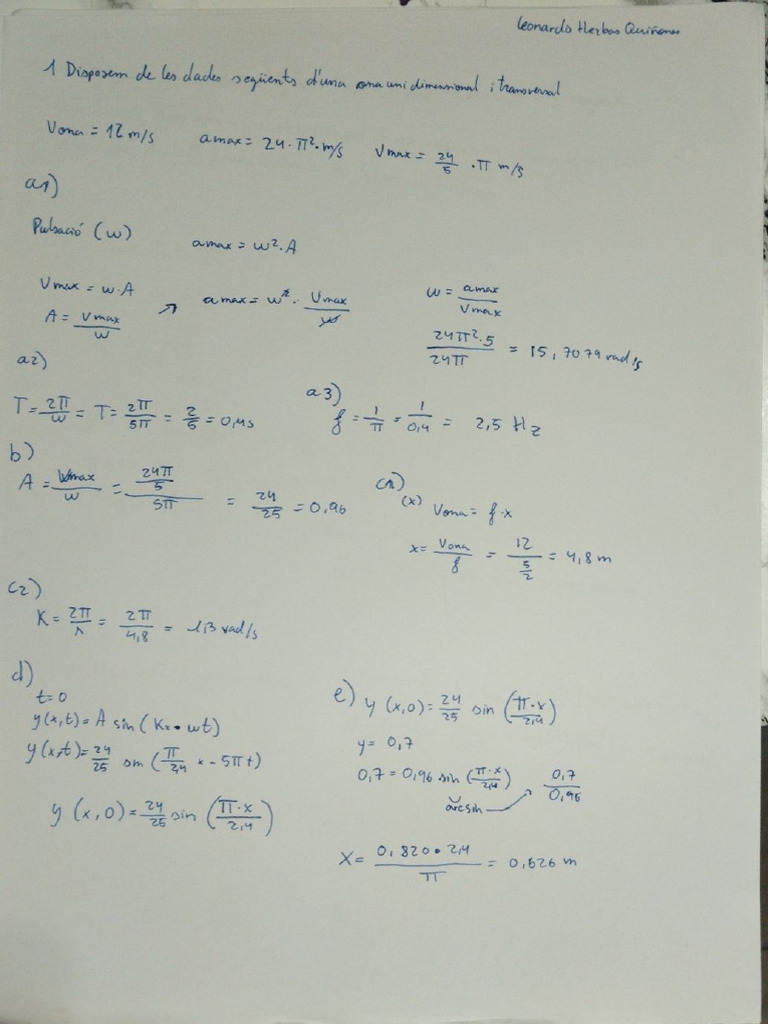 Leonardo Herbas Quiñones
1 Disposem de les dades següents d'una ona unidimensional i transversal
Vona = 12 m/s   amax = 24·π²·m/s   Vmax = 24/5 ·π m/s
a1)
Pulsació (w)   amax = w²·A
Vmax = w·A
A = Vmax/w ↗ amax = w²· Vmax/w   w = amax/Vmax
24π²·5/24π = 15,7079 rad/s
a2)
T = 2π/w = T = 2π/5π = 2/5 = 0,4s
a3)
f = 1/π = 1/0,4 = 2,5 Hz
b)
A = Vmax/w = (24π/5)/5π = 24/25 = 0,96
c1)
(x) Vona = f·x
x = Vona/f = 12/(5/2) = 4,8 m
c2)
K = 2π/λ = 2π/4,8 = 1,3 rad/s
d)
t=0
y(x,t) = A sin(Kx - wt)
y(x,t) = 24/25 sin(π/2,4 x - 5πt)
y (x,0) = 24/25 sin (π·x/2,4)
e) y (x,0) = 24/25 sin (π·x/2,4)
y = 0,7
0,7 = 0,96 sin (π·x/2,4)   0,7/0,96
arcsin
X = 0,820·2,4/π = 0,626 m